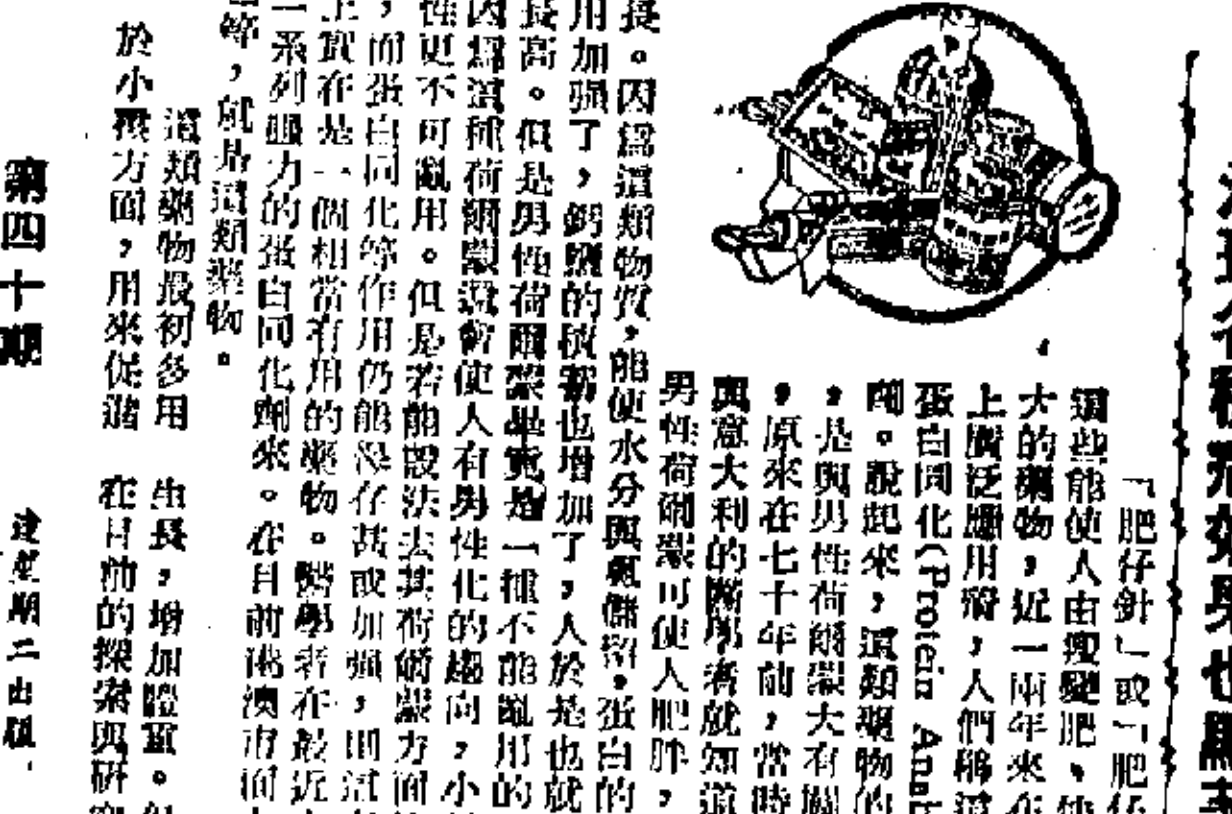 「肥仔針」或「肥仔
這些能使人由瘦變肥,使
大的藥物,近一兩年來在
上廣泛應用着,人們稱這
蛋白同化(Protein Anab
劑。說起來,這類藥物的
,是與男性荷爾蒙大有關
,原來在七十年前,當時
與意大利的醫學者就知道
男性荷爾蒙可使人肥胖,
長。因爲這類物質,能使水分與氮儲留,蛋白的
用加强了,鈣鹽的積蓄也增加了,人於是也就
長高。但是男性荷爾蒙畢竟是一種不能亂用的
因爲這種荷爾蒙還會使人有男性化的趨向,小
性更不可亂用。但是若能設法去其荷爾蒙方面
,而蛋白同化等作用仍能保存甚或加强,則這
上實在是一個相當有用的藥物。醫學者在最近
一系列強力的蛋白同化劑來。在目前港澳市面
等,就是這類藥物。
這類藥物最初多用
於小孩方面,用來促進
生長,增加體重。但
在目前的探索與研究
第四十期
逢星期二出版